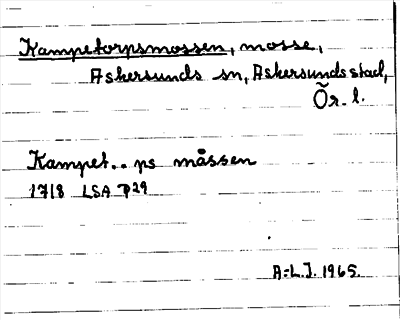 Kampetorpsmossen, mosse,
Askersunds sn, Askersunds stad,
Ör. l.
Kampet..ps måssen
1718 LSA P29
A-L.J. 1965.